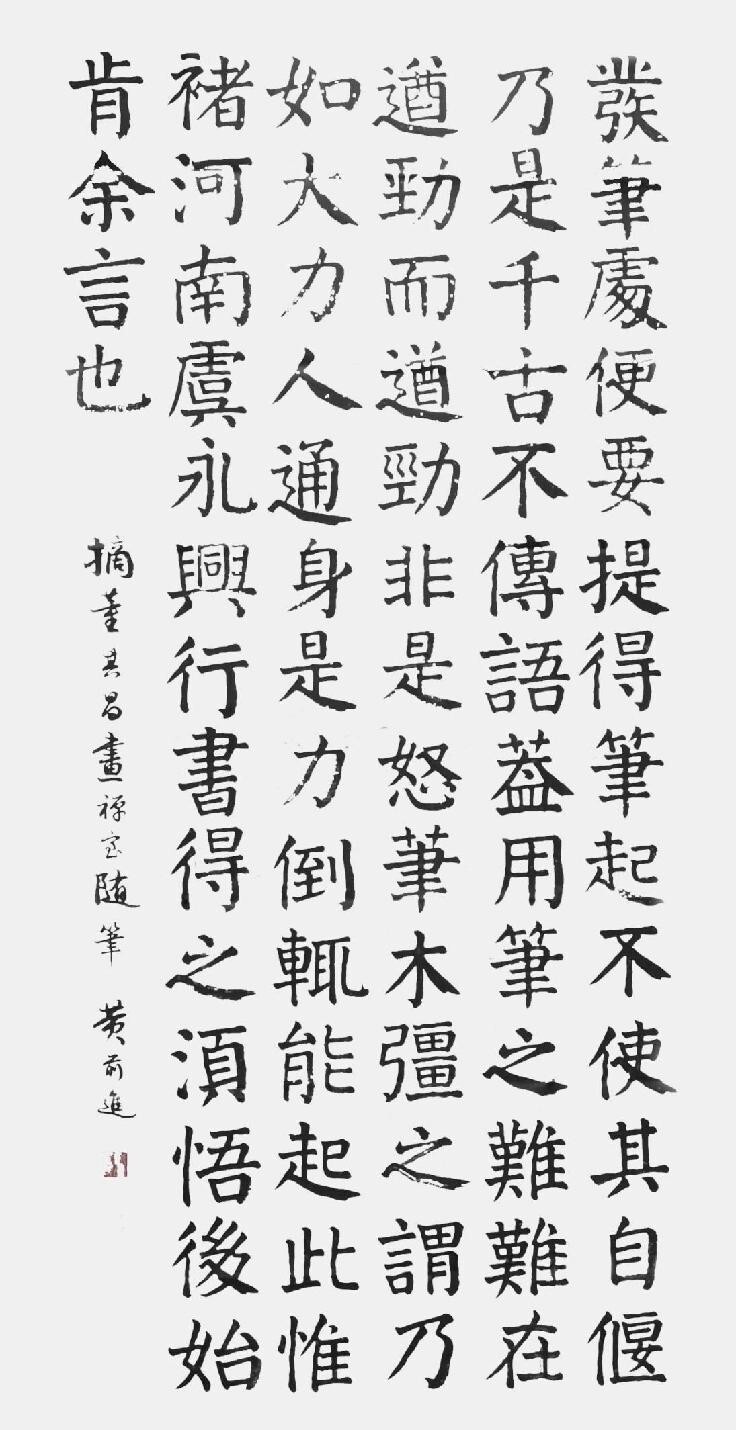 發筆處便要提得筆起不使其自偃
乃是千古不傳語蓋用筆之難難在
遒勁而遒勁非是怒筆木彊之謂乃
如大力人通身是力倒輒能起此惟
褚河南虞永興行書得之湏悟後始
肯余言也
摘董其昌畫禅室随筆 黄前進